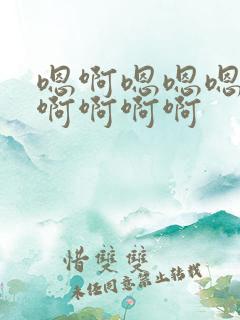 嗯啊嗯嗯嗯
啊啊啊啊
惜双双
未经同意禁止转载